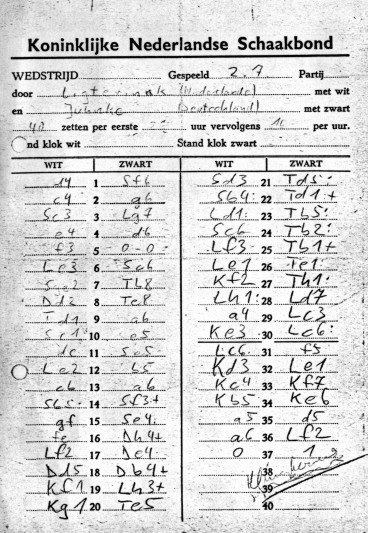 Koninklijke Nederlandse Schaakbond
WEDSTRIJD Gespeeld 2.7 Partij
door (Niederlande) met wit
en Juhnke (Deutschland) met zwart
40 zetten per eerste uur vervolgens 16 per uur.
nd klok wit Stand klok zwart
WIT ZWART WIT ZWART
d4 1 Sf6 Sd3 21 Td5:
c4 2 g6 Sb4: 22 Td1+
Sc3 3 Lg7 Ld1: 23 Tb5:
e4 4 d6 Sc6 24 Tb2:
f3 5 0-0 Lf3: 25 Tb1+
Le3 6 Sc6 Le1 26 Te1:
7 Tb8 Kf2 27 Th1:
Dd2 8 Te8 Lh1: 28 Ld7
Td1 9 a6 a4 29 Lc3
Sc1 10 e5 Ke3 30 Lc6:
11 Lc6: 31 f5
Le2 12 b5 Kd3 32 Le1
cb 13 ab Kc4 33 Kf7
Sb5: 14 Sf3+ Kb5 34 Ke6
gf 15 Se4: a5 35 d5
fe 16 Dh4+ a6 36 Lf2
Lf2 17 De4: 0 37 1
Dd5 18 Db4+ 38
Kf1 19 Lh3+ 39
Kg1 20 Te5 40